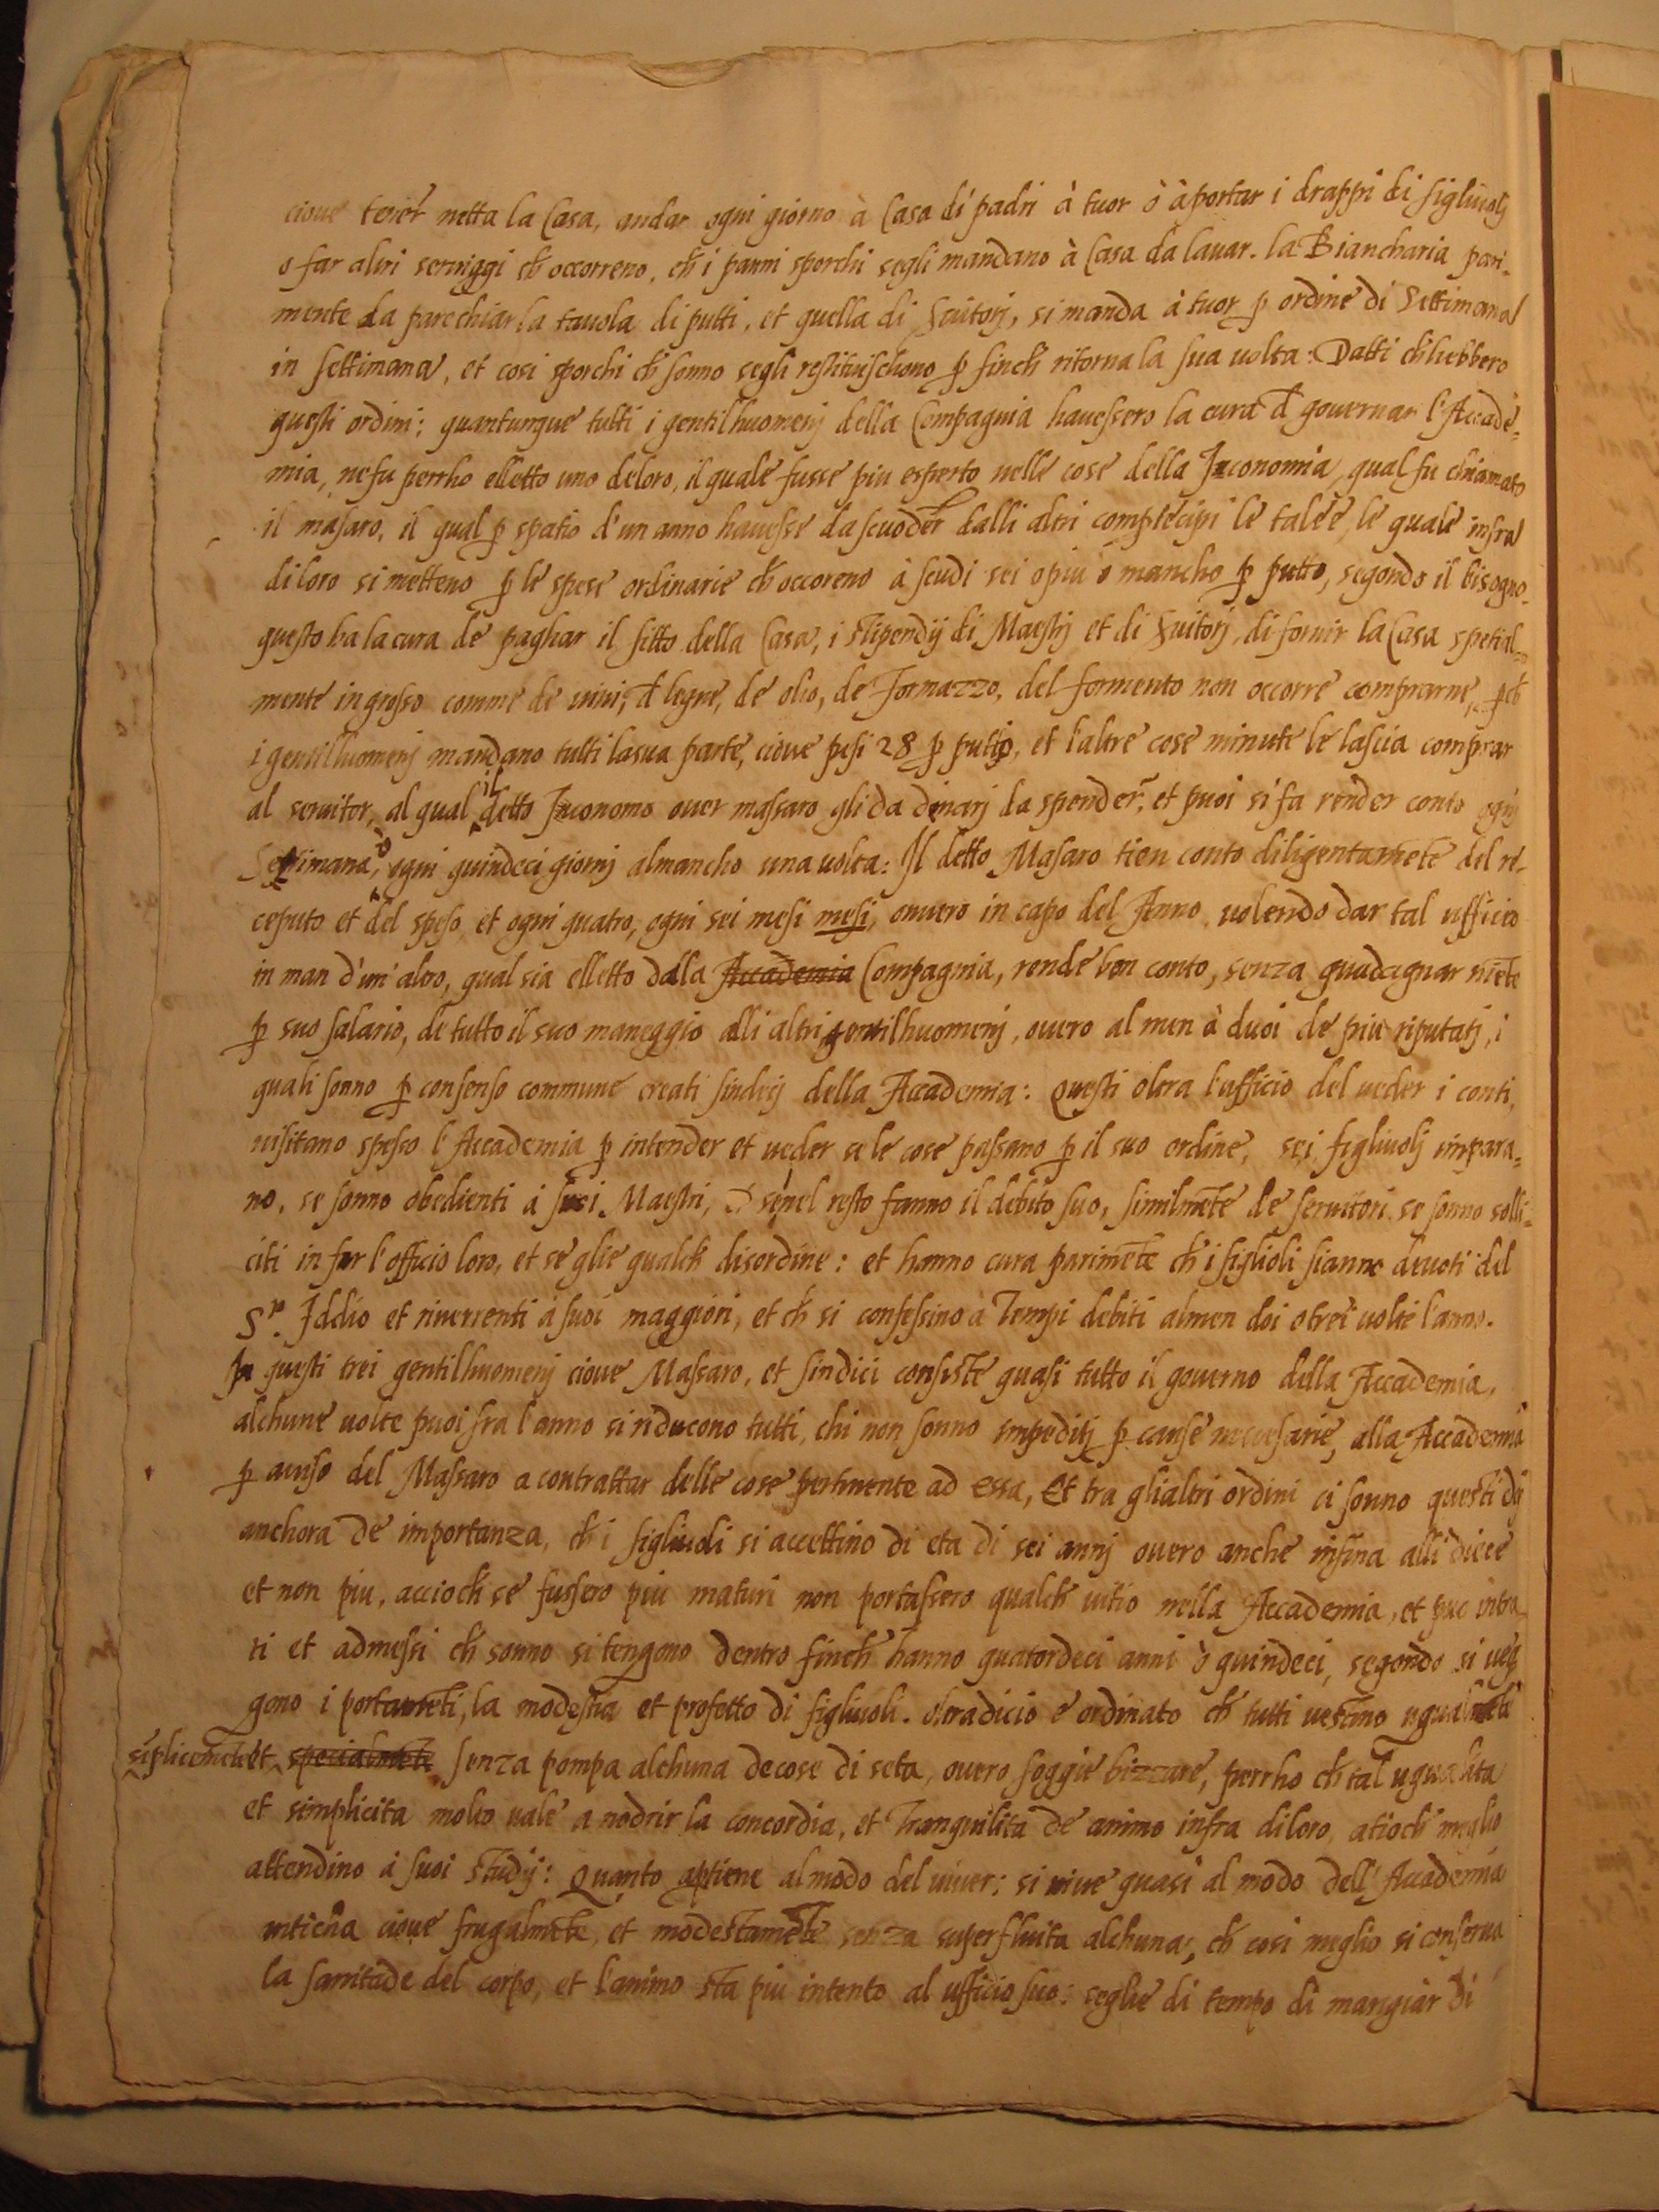 cioue tener netta la Casa, andar ogni giorno à Casa di padri à tuor ò à portar i drappi di figliuolj
o far altri seruiggi ch̃ occorreno, ch̃ i panni sporchi segli mandano à Casa da lauar. la Biancharia pari-
mente da parechiar la tauola di putti, et quella di Seuitorj, si manda à tuor p ordine di Settimana
in settimana, et cosi sporchi ch̃ sonno segli restituischono p finch̃ ritorna la sua uolta: Datti ch̃ hebbero
questi ordini: quantunque tutti i gentilhuomenj della Compagnia hauessero la cura d̃ gouernar l'Accade=
mia, ne fu perrho elletto uno deloro, il quale fusse piu esperto nelle cose della Iconomia, qual fu chiamato
il masaro, il qual p spatio d'un anno hauesse da scuoder dalli altri complecipi le talee, le quale infra
di loro si metteno p le spese ordinarie ch̃ occoreno à scudi sei o piu o mancho p putto, segondo il bisogno.
questo ha la cura de paghar il fitto della Casa, i stipendij di Maestrj et di Seuitorj, di fornir la Casa spetial=
mente in grosso comme de uini, d̃ legne, de olio, de formazzo, del formento non occorre comprarne, pch̃
i gentilhuomenj mandano tutti la sua parte, cioue pesi 28 p putto, et l'altre cose minute le lascia comprar
al seruitor, al qual il detto Iconomo ouer massaro gli da dinarj da spender, et puoi si fa render conto ogni
Settimana, ò ogni quindeci giornj almancho una uolta: Il detto Masaro tien conto diligentamẽte del re-
ceputo et del speso, et ogni quatro, ogni sei mesi mesi, ouuero in capo del Anno, uolendo dar tal ufficio
in man d'un' altro, qual sia elletto dalla Accademia Compagnia, rende bon conto, senza guadagnar niẽte
p suo salario, de tutto il suo maneggio alli altri gentilhuomenj, ouero al men à duoi de piu riputatj, i
quali sonno p consenso commune creati sindicj della Accademia: Questi oltra l'ufficio del ueder i conti,
uisitano spesso l'Accademia p intender et ueder se le cose passano p il suo ordine, se i figliuolj impara=
no, se sonno obedienti à suoi Maestri, se nel resto fanno il debito suo, similmẽte de seruitori se sonno solli=
citi in far l'officio loro, et se glie qualch̃ disordine: et hanno cura parimẽte ch̃ i figlioli sianno deuoti del
Sr. Iddio et riuerrenti à suoi maggiori, et ch̃ si confessino à Tempi debiti almen doi o trei uolte l'anno.
In questi trei gentilhuomenj cioue Massaro, et sindici consiste quasi tutto il gouerno della Accademia,
alchune uolte puoi fra l'anno si riducono tutti, chi non sonno impeditj p cause necessarie, alla Accademia
p auiso del Massaro a contrattar delle cose pertinente ad essa, Et tra gli altri ordini ci sonno questi di
anchora de importanza, ch̃ i figliuoli si accettino di eta di sei annj ouero anche insina alli diece
et non piu, accioch̃ se fussero piu maturi non portassero qualch̃ uitio nella Accademia, et puo intra
ti et admessi ch̃ sonno si tengono dentro finch̃ hanno quatordeci anni ò quindeci, segondo si ueg
gono i portamẽti, la modestia et profetto di figliuoli. oltradicio e ordinato ch̃ tutti uestino ugualmẽte
sĩplicemẽte et specialmẽte senza pompa alchuna de cose di seta, ouero foggie bizzare, perrho ch̃ tal ugualita
et simplicita molto uale a nodrir la concordia, et tranquilita de animo infra di loro, atioch̃ meglio
attendino à suoi studij: Quanto aptiene al modo del uiuer: si uiue quasi al modo dell'Accademia
anticha cioue frugalmẽte, et modestamẽte senza superfluita alchuna, ch̃ cosi meglio si conserua
la sanitade del corpo, et l'animo sta piu intento al ufficio suo: seglie di tempo di mangiar di